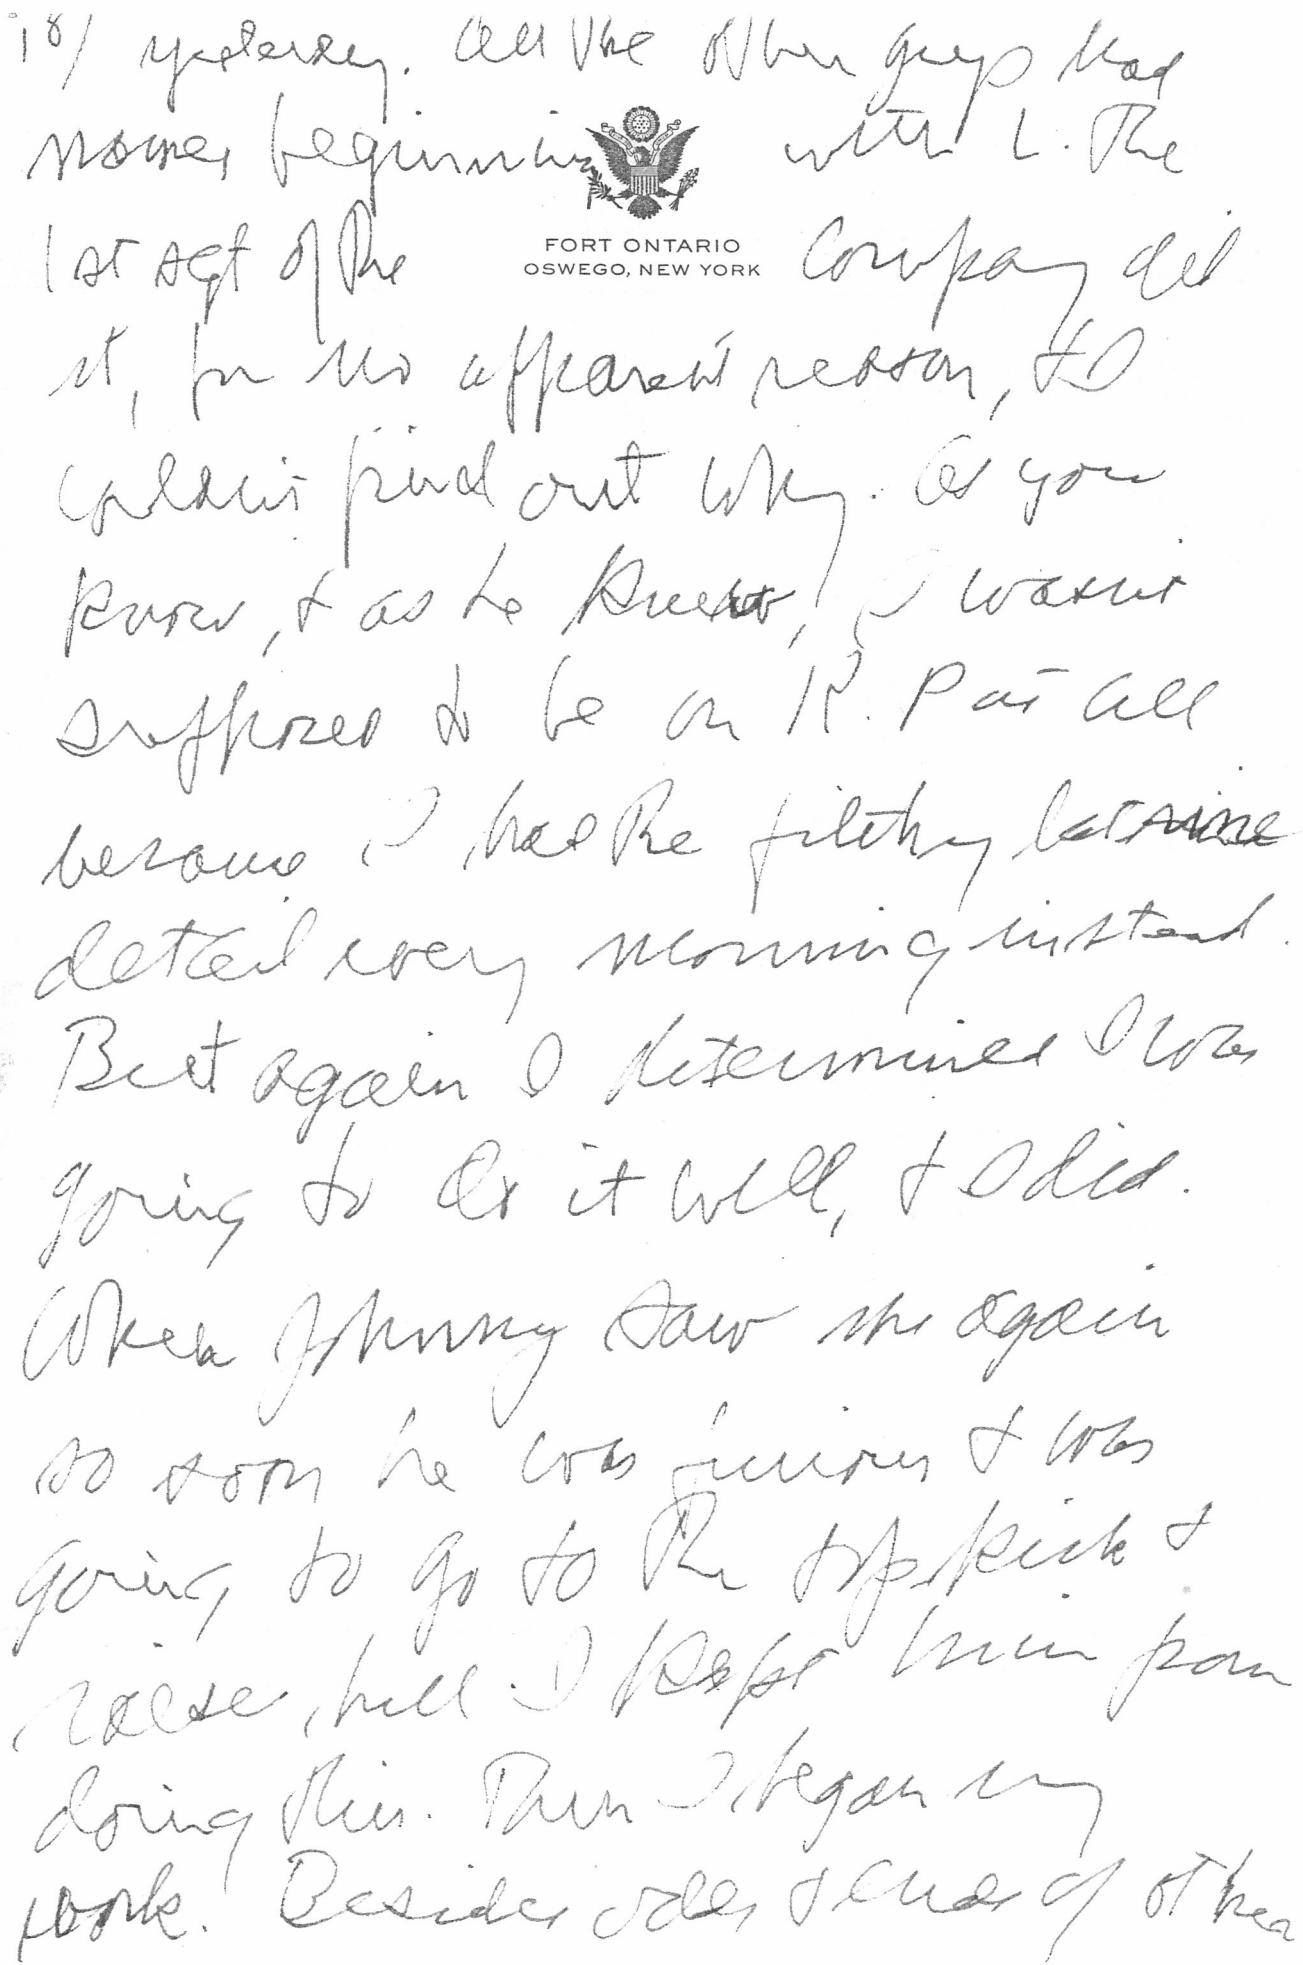 18/ yesterday. All the other guys had
names beginning with L. The
FORT ONTARIO
OSWEGO, NEW YORK
1st sgt of the company did
it, for no apparent reason, & I
couldn't find out why. As you
know, & as he knew, I wasn't
supposed to be on K.P at all
because I had the filthy latrine
detail every morning instead.
But again I determined I was
going to do it well, & I did.
When Johnny saw me again
so soon he was furious & was
going to go to the top kick &
raise hell. I kept him from
doing this. Then I began my
work. Besides odds & ends of other